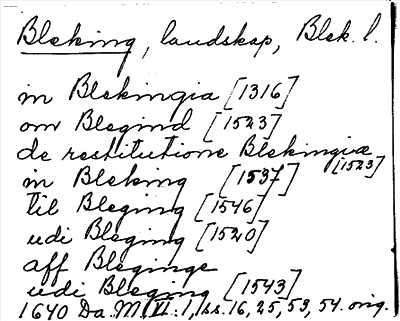 Bleking, landskap, Blek. l.
in Blekingia [1316]
om Blegind [1523]
de restitutione Blekingiæ [1523]
in Bleking [1537]
til Bleging [1546]
udi Bleging [1520]
aff Bleginge
udi Bleging [1543]
1640 Da. M. VI: 1, lss. 16, 25, 53, 54. orig.